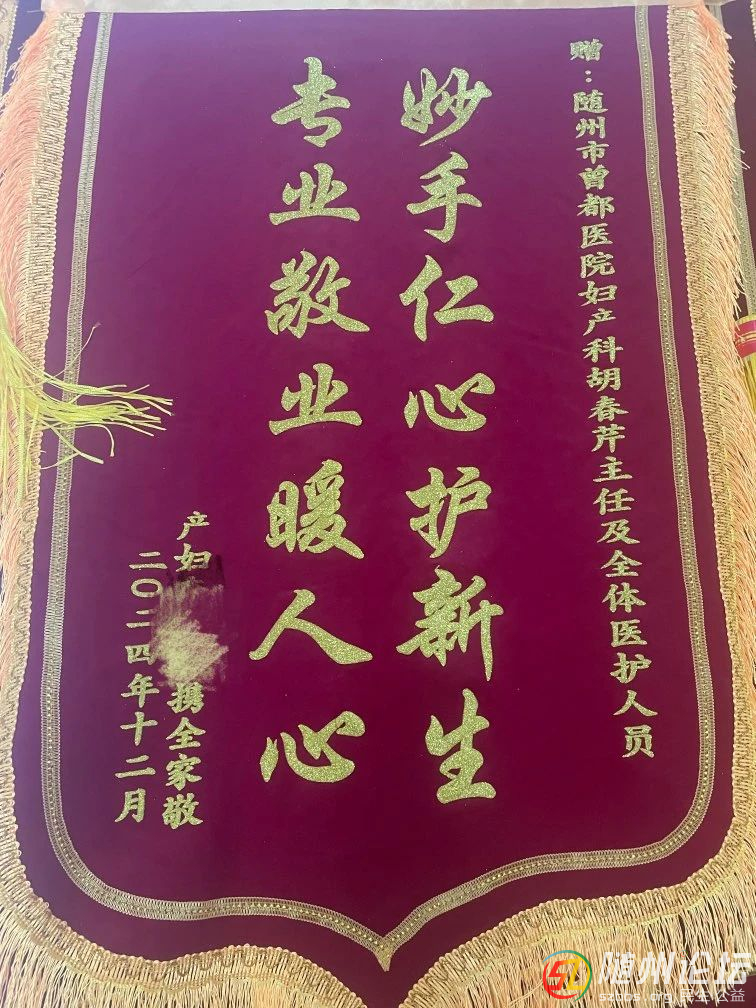 赠：随州市曾都医院妇产科胡春芹主任及全体医护人员
妙手仁心护新生
专业敬业暖人心
产妇携全家敬
二〇二四年十二月
随州论坛
szbbs.org 民生公益